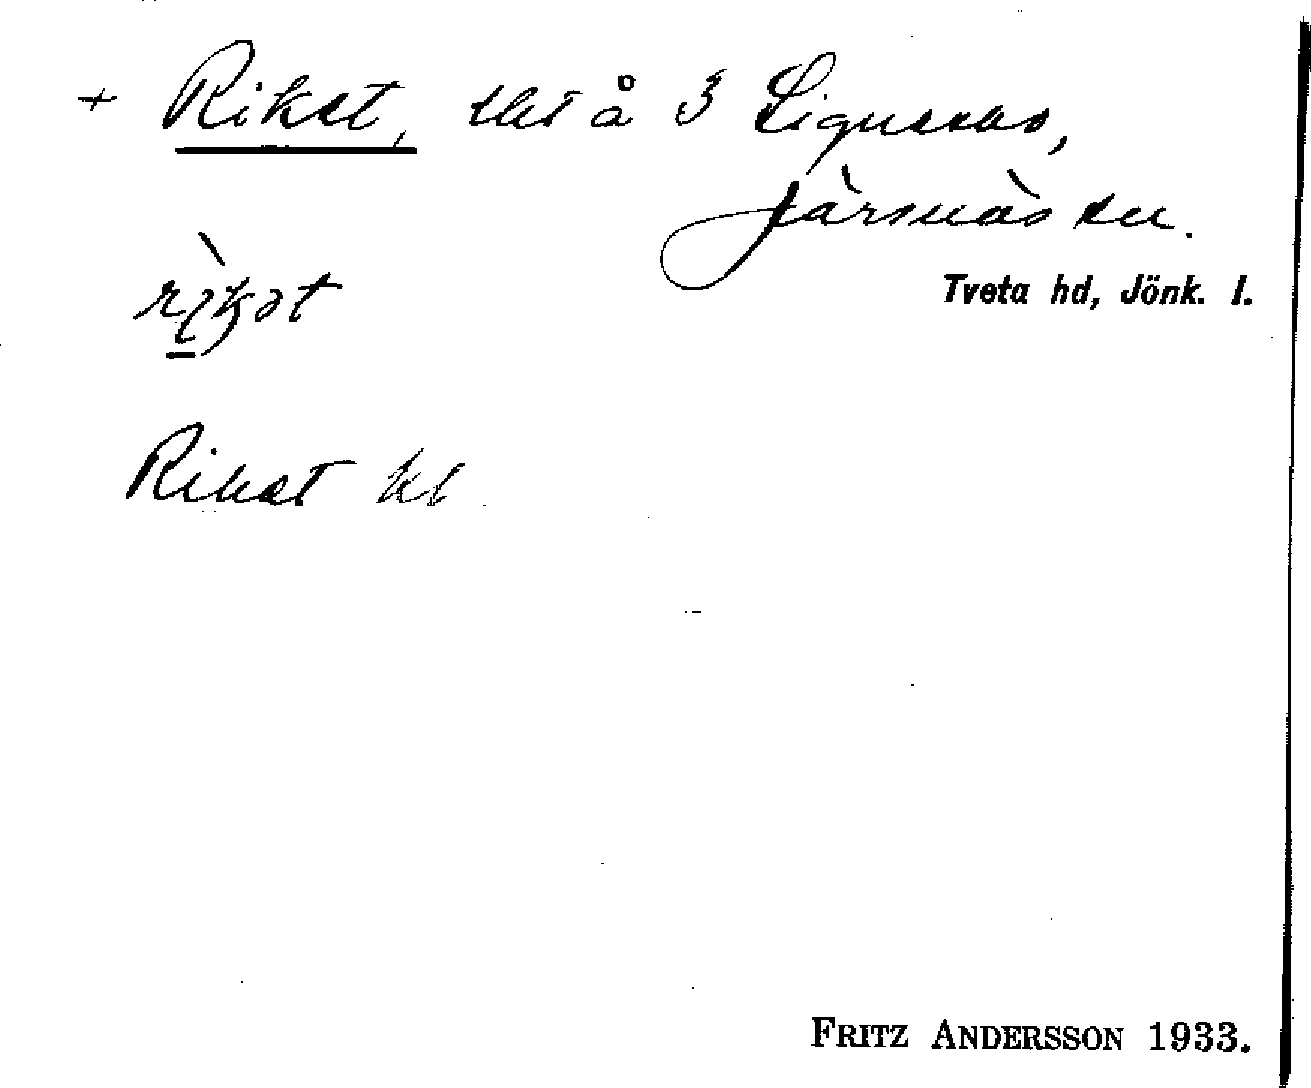 + Riket, tlt å 3 Ligussas,
Järsnäs sn.
Tveta hd, Jönk. l.
rikət
Riket kl
FRITZ ANDERSSON 1933.